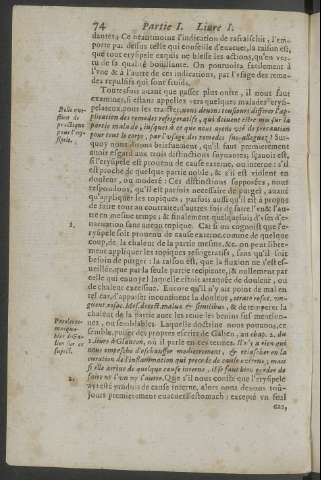 74 Partie I. Liure I.
dantes; Ce neantmoins l'indication de rafraischir, l'em-
porte par dessus celle qui conseille d'euacuer, la raison est,
que tout erysipele exquis ne blesse les actions, qu'en ver-
tu de sa qualité bouillante. On pouruoira facilement à
l'vne & à l'autre de ces indications, par l'vsage des reme-
des repulsifs qui sont froids.
Toutesfois auant que passer plus outre, il nous faut
examiner, si estans appellez vers quelques malades
erysipelateux, nous les traicter, nous deuons: tousiours differer l'ap-
plication des remedes refrigeratifs, qui doiuent estre mis sur la
partie malade, iusques à ce que nous ayons vsé de precaution
pour tout le corps, par l'vsage des remedes
quoy nous dirons briefuement, qu'il faut premierement
auoir esgard aux trois distinctions suyuantes; sçauoir est,
si l'erysipele est procedé de cause externe, ou interne: s'il
est proche de quelque partie noble, & s'il est violent en
douleur, ou moderé: Ces distinctions supposées, nous
respondons, qu'il est parfois necessaire de purger, auant
qu'appliquer les topiques; parfois aussi qu'il est à propos
de faire tout au contraire, d'autres fois de faire l'vn & l'au-
tre en mesme temps; & finalement quelquefois d'vser d'e-
uacuation sans aucun topique. Car si on cognoist que l'e-
rysipele soit prouenu de cause externe, comme de quelque
coup, de la chaleur de la partie mesme, &c. on peut libre-
ment appliquer les topiques refrigeratifs, sans qu'il soit
besoin de purger: la raison est, que la fluxion ne s'est es-
ueillée que par la seule partie recipiente, & nullement par
celle qui enuoye) laquelle estoit attaquée de douleur, ou
de chaleur excessiue. Encore qu'il n'y ait point de mal en
tel cas, d'appaiser incontinent la douleur,
& de temperer la
chaleur de la partie auec les
nez, ou semblables. Laquelle doctrine nous pouuons, ce
semble, puiser des propres escrits de Galien, au chap. 2. du
2. liure à Glaucon, où il parle en ces termes. Il n'y a rien qui
nous empesche d'eschauffer modicement, & refraischir en la
curation de l'inflammation qui procede de cause externe; mais
si elle arriue de quelque cause interne, il se faut bien garder de
faire ny l'vn ny l'autre. Que s'il nous conste que l'erysipele
ayt esté produit de cause interne, alors nous deuons tous-
jours premierement euacuer l'estomach; excepté vn seul
cas,
Belle que-
stion de
practique
pour l'ery-
sipele.
1.
2.